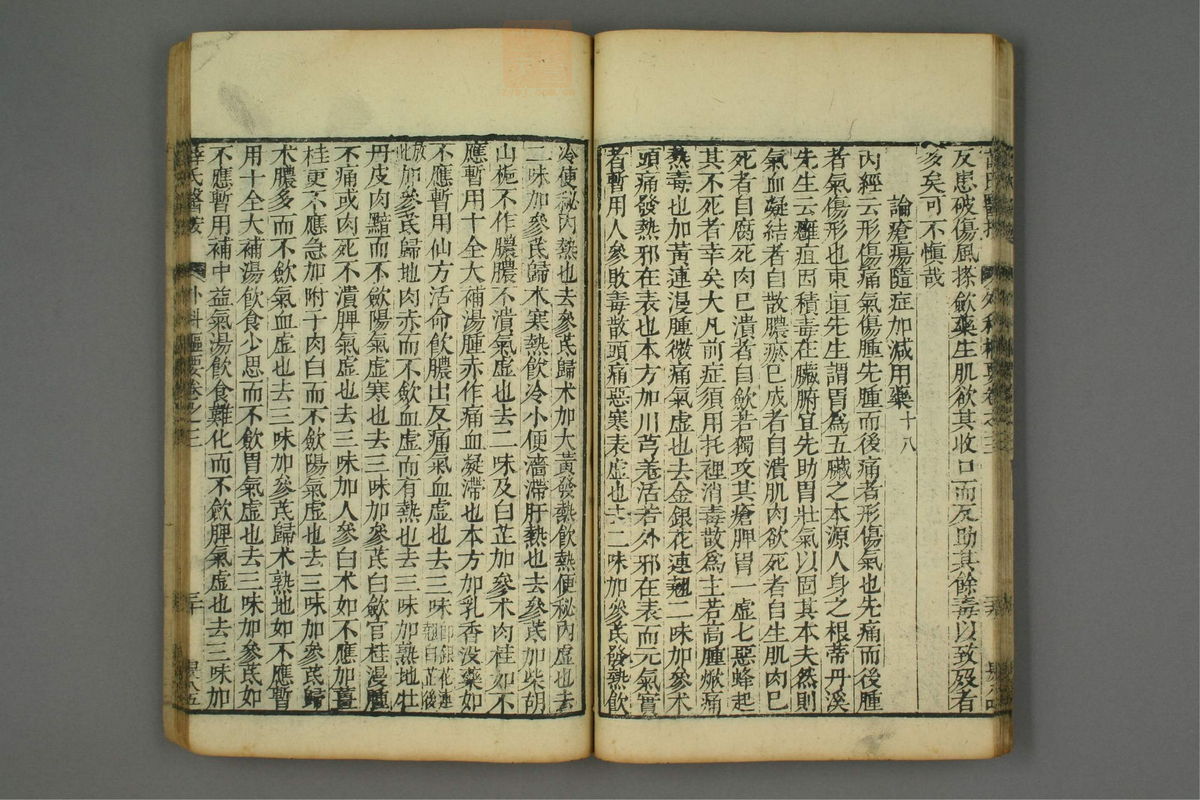 反患破傷風搽斂藥生肌欲其收口而反助其餘毒以致殁者
多矣可不慎哉
論瘡瘍隨症加減用藥十八
內經云形傷痛氣傷腫先腫而後痛者形傷氣也先痛而後腫
者氣傷形也東垣先生謂胃爲五臟之本源人身之根蒂丹溪
先生云癰疽因積毒在臟腑宜先助胃壯氣以固其本夫然則
氣血凝結者自散膿瘀已成者自潰肌肉欲死者自生肌肉已
死者自腐死肉已潰者自斂若獨攻其瘡脾胃一虛七惡蜂起
其不死者幸矣大凡前症須用托裡消毒散爲主若高腫焮痛
熱毒也加黃連漫腫微痛氣虛也去金銀花連翹二味加參朮
頭痛發熱邪在表也本方加川芎羗活若外邪在表而元氣實
者暫用人參敗毒散頭痛惡寒表虛也去二味加參芪發熱飲
冷便秘內熱也去參芪歸朮加大黃發熱飲熱便秘內虛也去
二味加參芪歸朮寒熱飲冷小便濇滯肝熱也去參芪加柴胡
山梔不作膿膿不潰氣虛也去二味及白芷加參朮肉桂如不
應暫用十全大補湯腫赤作痛血凝滯也本方加乳香沒藥如
不應暫用仙方活命飲膿出反痛氣血虛也去三味即銀花連翹白芷後
放此加參芪歸地肉赤而不斂血虛而有熱也去三味加熟地牡
丹皮肉黯而不斂陽氣虛寒也去三味加參芪白斂官桂漫腫
不痛或肉死不潰脾氣虛也去三味加人參白朮如不應加薑
桂更不應急加附子肉白而不斂陽氣虛也去三味加參芪歸
朮膿多而不斂氣血虛也去三味加參芪歸朮熟地如不應暫
用十全大補湯飲食少思而不斂胃氣虛也去三味加參芪如
不應暫用補中益氣湯飲食難化而不斂脾氣虛也去三味加
薛氏醫按 外科樞要卷之三 三十